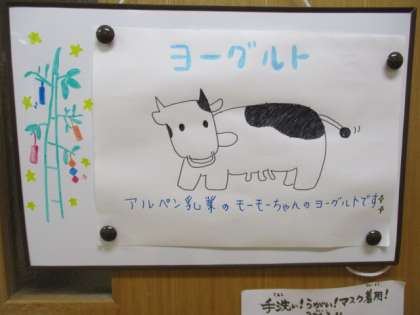 ヨーグルト
アルペン乳業のモーモーちゃんのヨーグルトです
手洗い!うがい!マスク着用!